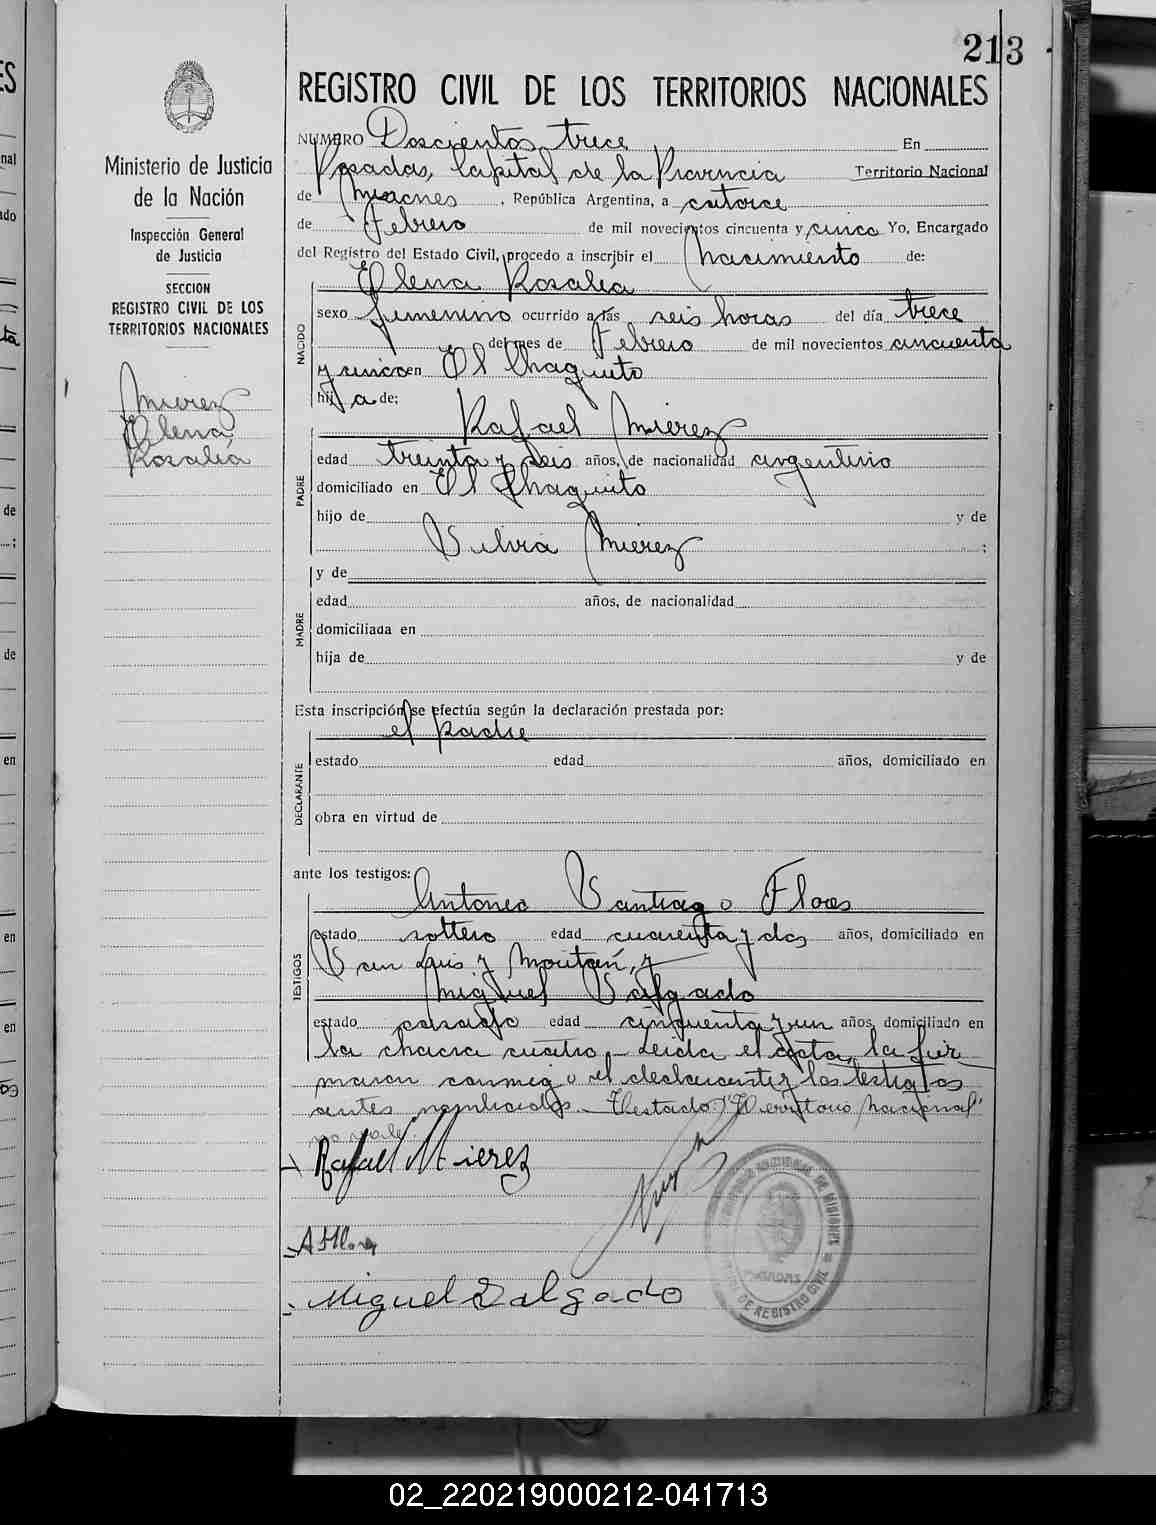 213
REGISTRO CIVIL DE LOS TERRITORIOS NACIONALES
Ministerio de Justicia
de la Nación
Inspección General
de Justicia
SECCION
REGISTRO CIVIL DE LOS
TERRITORIOS NACIONALES
Mierez
Elena
Rosalia
NUMERO Doscientos trece En
Posadas, Capital de la Provincia Territorio Nacional
de Misiones, República Argentina, a catorce
de Febrero de mil novecientos cincuenta y cinco Yo, Encargado
del Registro del Estado Civil, procedo a inscribir el nacimiento de:
Elena Rosalia
NACIDO
sexo femenino ocurrido a las seis horas del día trece
del mes de Febrero de mil novecientos cincuenta
y cinco en El Chaquito
hija de:
Rafael Mierez
PADRE
edad treinta y seis años, de nacionalidad argentino
domiciliado en El Chaquito
hijo de y de
Silvia Mierez ;
y de
MADRE
edad años, de nacionalidad
domiciliada en
hija de y de
Esta inscripción se efectúa según la declaración prestada por:
el padre
DECLARANTE
estado edad años, domiciliado en
obra en virtud de
ante los testigos:
Antonio Santiago Flores
TESTIGOS
estado soltero edad cuarenta y dos años, domiciliado en
San Luis y Moritan, y
Miguel Salgado
estado casado edad cincuenta y un años, domiciliado en
la chacra cuatro. Leida el acta, la fir
maron conmigo el declarante y los testigos
antes nombrados. Testado: "Territorio Nacional"
no vale.
Rafael Mierez
Miguel Salgado
POSADAS
DE REGISTRO CIVIL
02_220219000212-041713